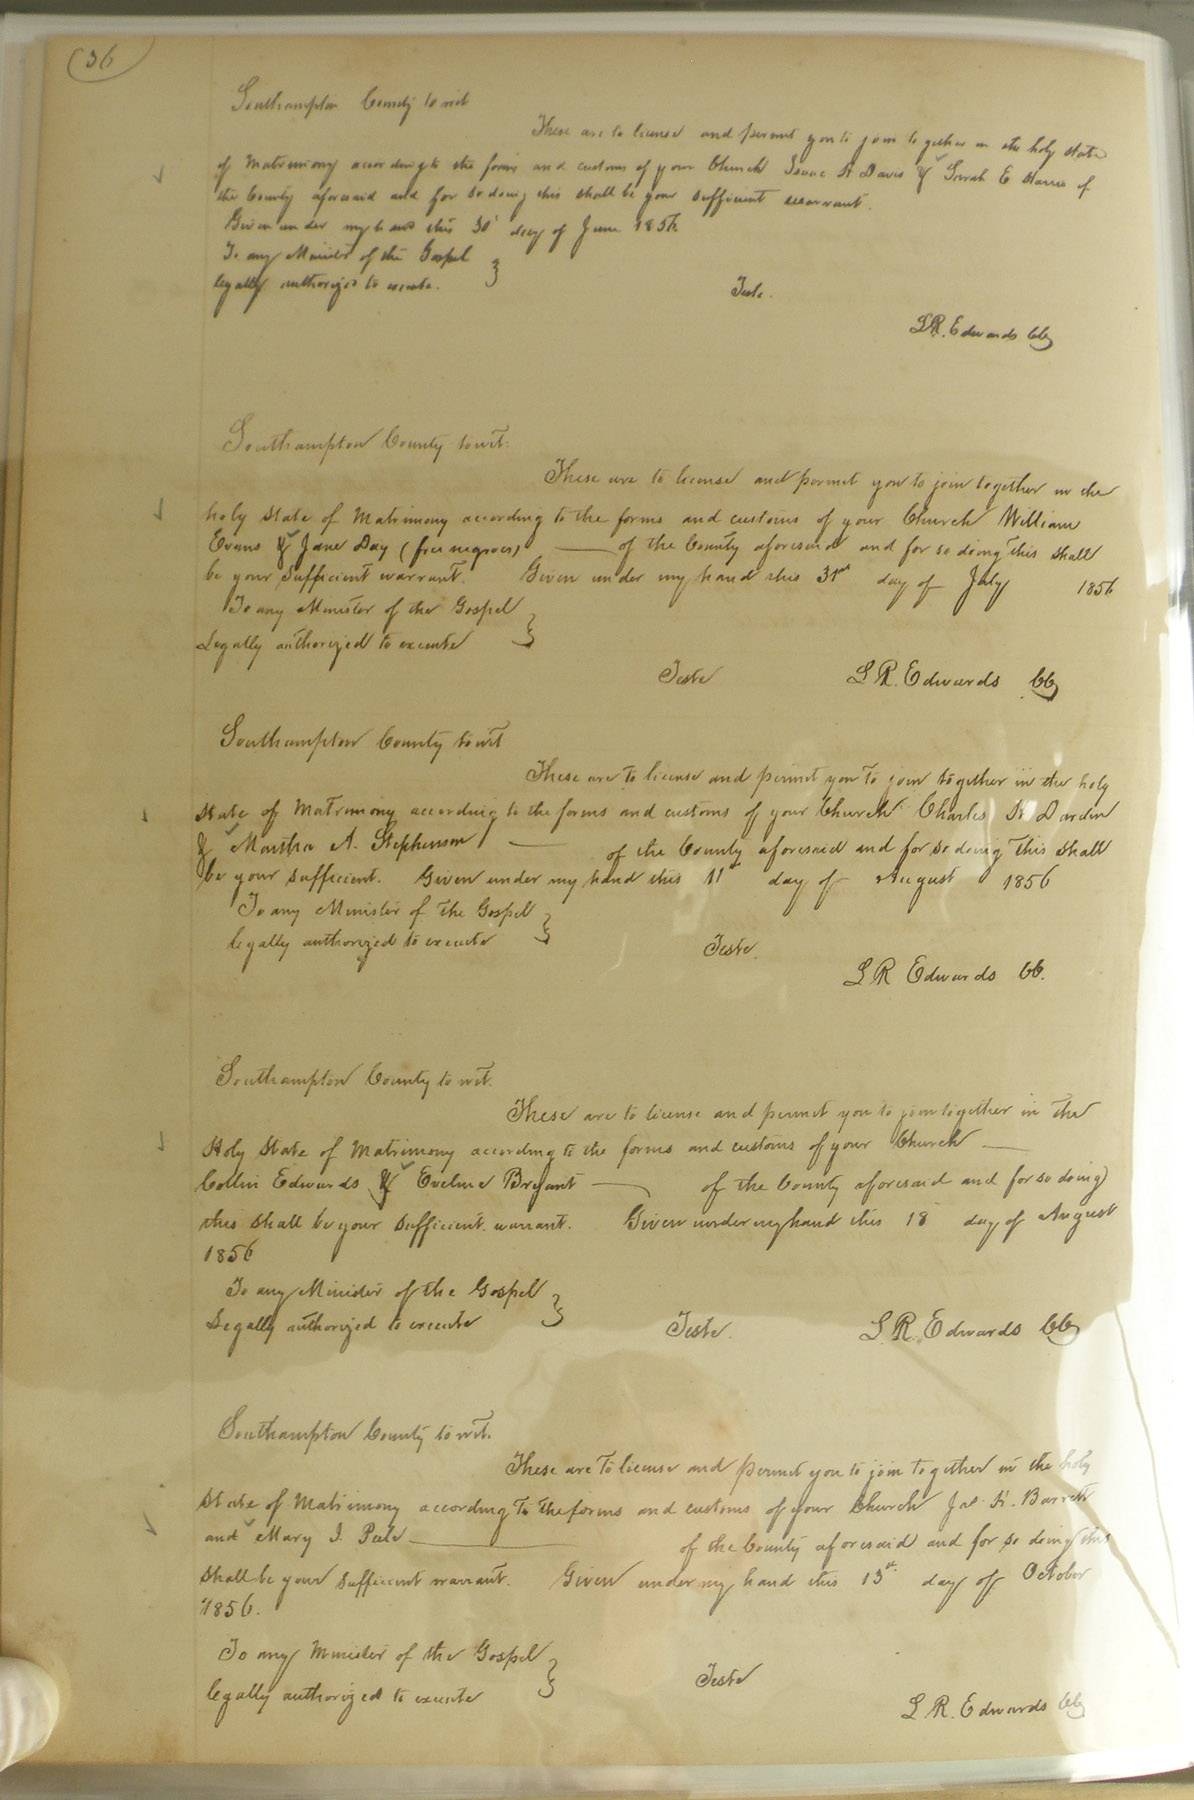 36
Southampton County to wit
These are to license and permit you to join together in the holy state
of Matrimony according to the forms and customs of your Church Isaac R Davis & Sarah E of
the County aforesaid and for so doing this shall be your sufficient warrant.
Given under my hand this 30 day of June 1856
To any Minister of the Gospel }
legally authorized to execute.
Teste.
L R. Edwards CC
Southampton County to wit:
These are to license and permit you to join together in the
holy State of Matrimony according to the forms and customs of your Church William
Evans & Jane Day (free negroes) of the County aforesaid and for so doing this shall
be your Sufficient warrant. Given under my hand this 31st day of July 1856
To any Minister of the Gospel }
Legally authorized to execute
Teste L R. Edwards CC
Southampton County to wit
These are to license and permit you to join together in the holy
State of Matrimony according to the forms and customs of your Church Charles Darden
& Martha A. Stephenson of the County aforesaid and for so doing this shall
be your sufficient. Given under my hand this 11 day of August 1856
To any Minister of the Gospel }
legally authorized to execute
Teste.
L R Edwards CC.
Southampton County to wit.
These are to license and permit you to join together in the
Holy State of Matrimony according to the forms and customs of your Church
Collin Edwards & Eveline Bryant of the County aforesaid and for so doing
this shall be your sufficient warrant. Given under my hand this 18 day of August
1856
To any Minister of the Gospel }
Legally authorized to execute
Teste. L. R. Edwards CC
Southampton County to wit.
These are to license and permit you to join together in the holy
State of Matrimony according to the forms and customs of your Church Jas. Barrett
and Mary J. Peele of the County aforesaid and for so doing this
shall be your sufficient warrant. Given under my hand this 13th day of October
1856.
To any Minister of the Gospel }
legally authorized to execute
Teste
L R. Edwards CC